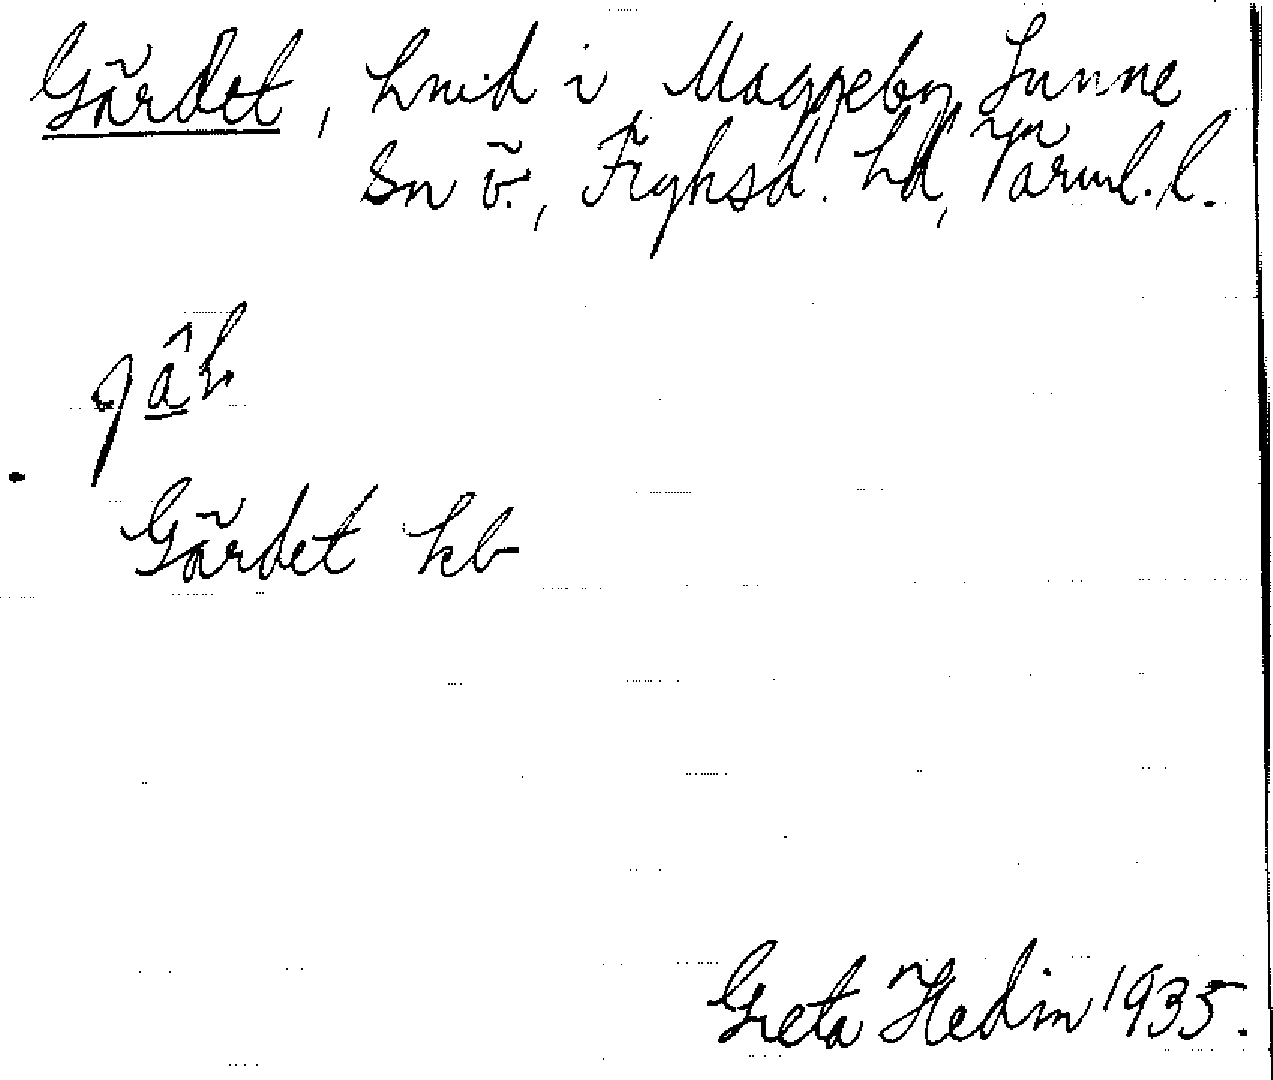 Gärdet, hmid i Maggeby, Sunne
Sn ö., Fryksd. hd, Värml. l.
Gärdet kb
Greta Hedin 1935.